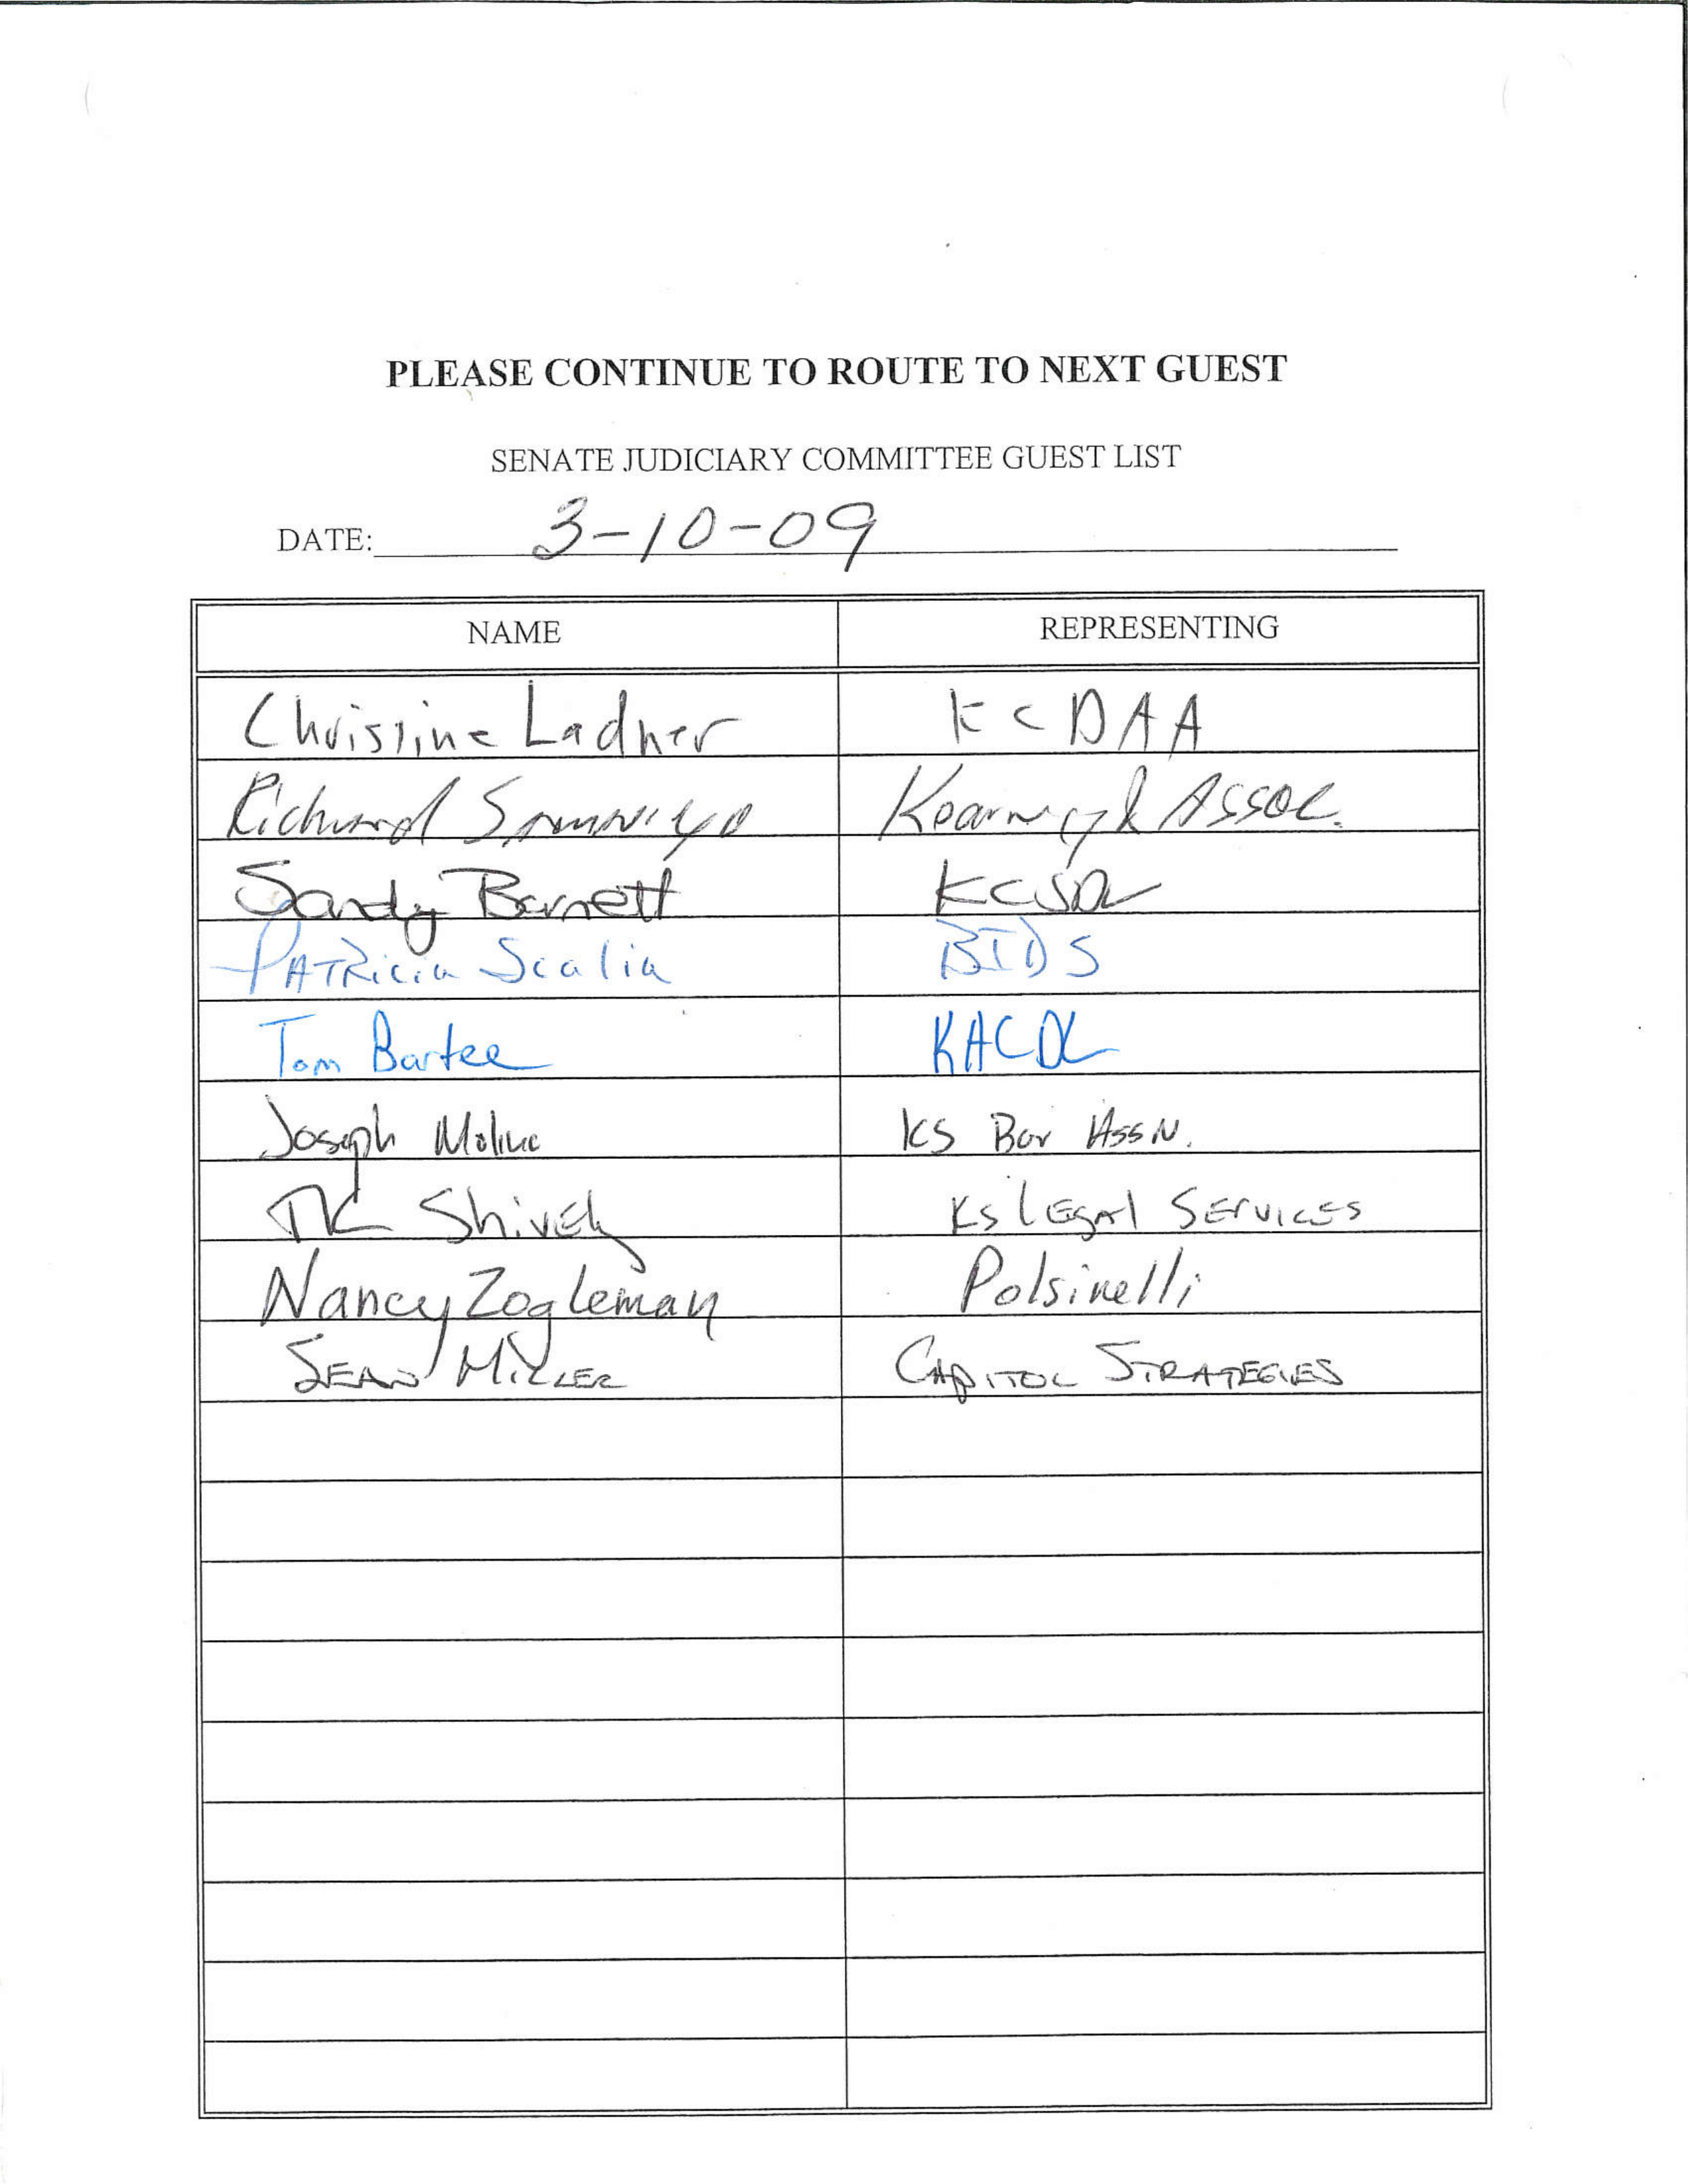 PLEASE CONTINUE TO ROUTE TO NEXT GUEST
SENATE JUDICIARY COMMITTEE GUEST LIST
DATE: 3-10-09
NAME REPRESENTING
Christine Ladner KCDAA
Richard Kearney & Assoc.
Sandy Barnett KCSDV
PATRicia Scalia BIDS
Tom Bartee KACDL
Joseph Molina KS Bar Assn.
TK Shively Ks LEgAl SErvicES
Nancy Zogleman Polsinelli
SEAN MILLER CAPITOL STRATEGIES